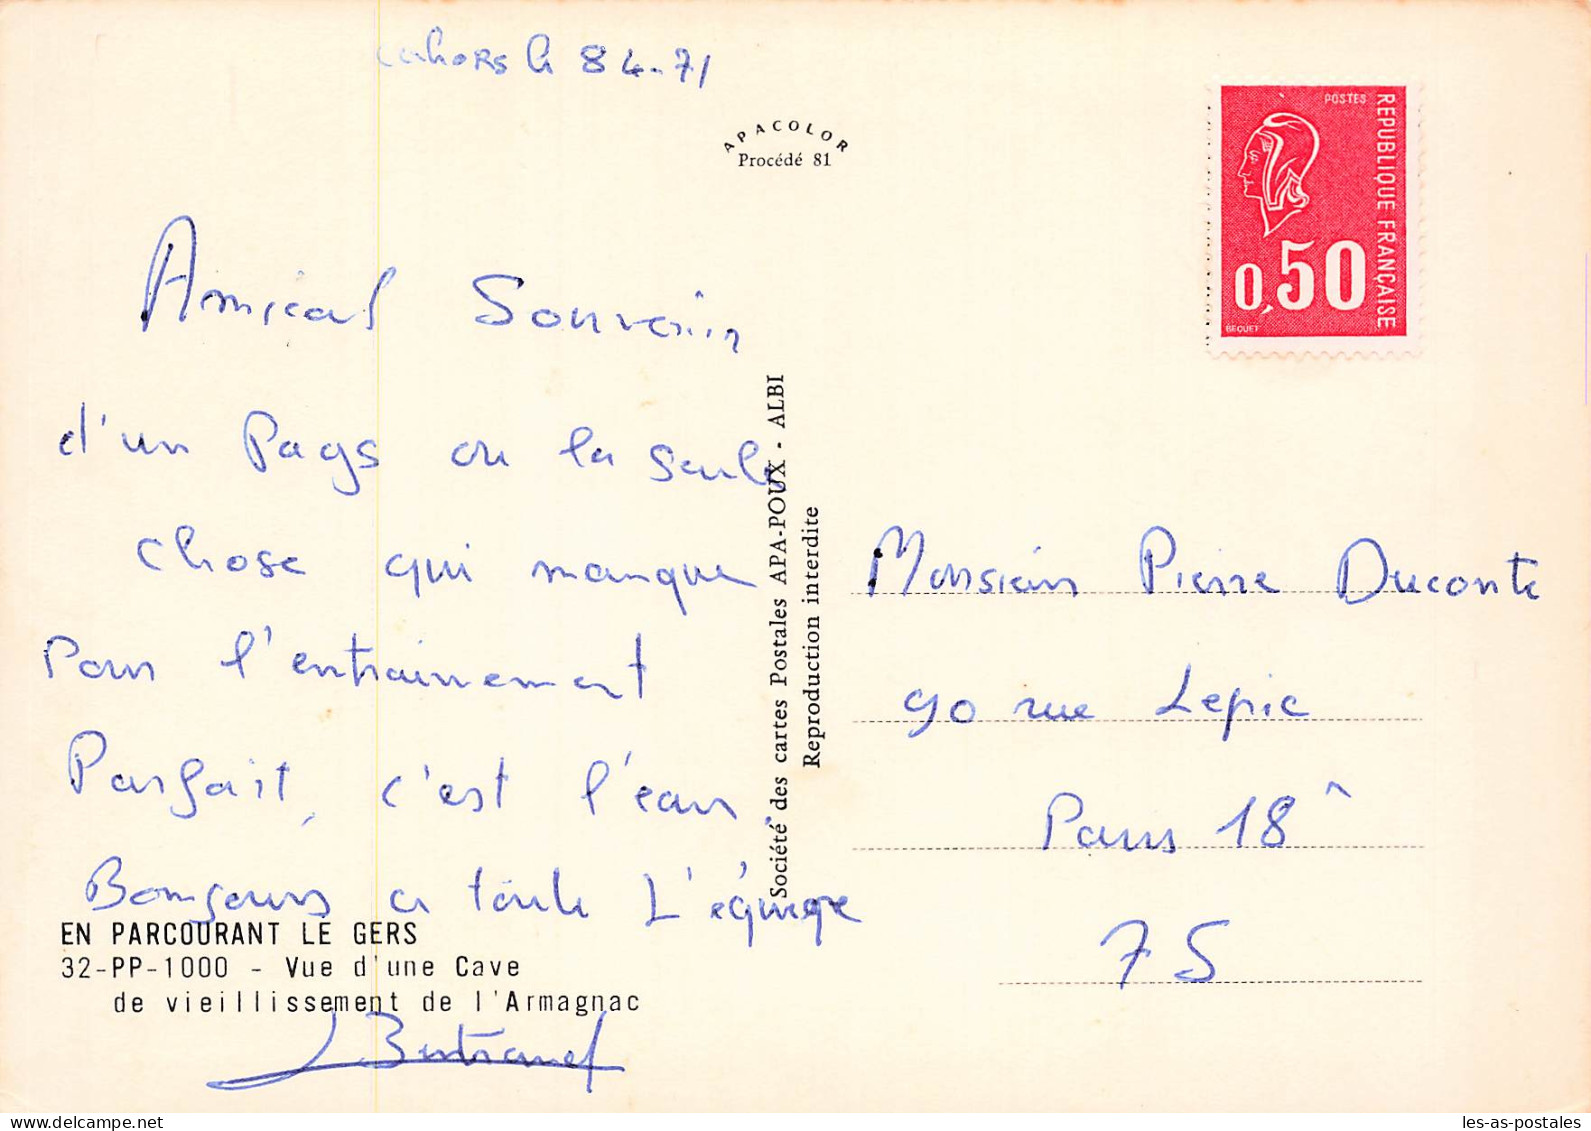 Cahors le 8 4-71
APACOLOR
Procédé 81
POSTES
REPUBLIQUE FRANÇAISE
0,50
BEQUET
Amical Souvenir
d'un Pays ou la seule
chose qui manque
Pour l'entrainement
Parfait, c'est l'eau.
Bonjours a toute L'équipe
Société des cartes Postales APA-POUX - ALBI
Reproduction interdite
Monsieur Pierre Duconte
90 rue Lepic
Paris 18
75
EN PARCOURANT LE GERS
32-PP-1000 - Vue d'une Cave
de vieillissement de l'Armagnac
les-as-postales